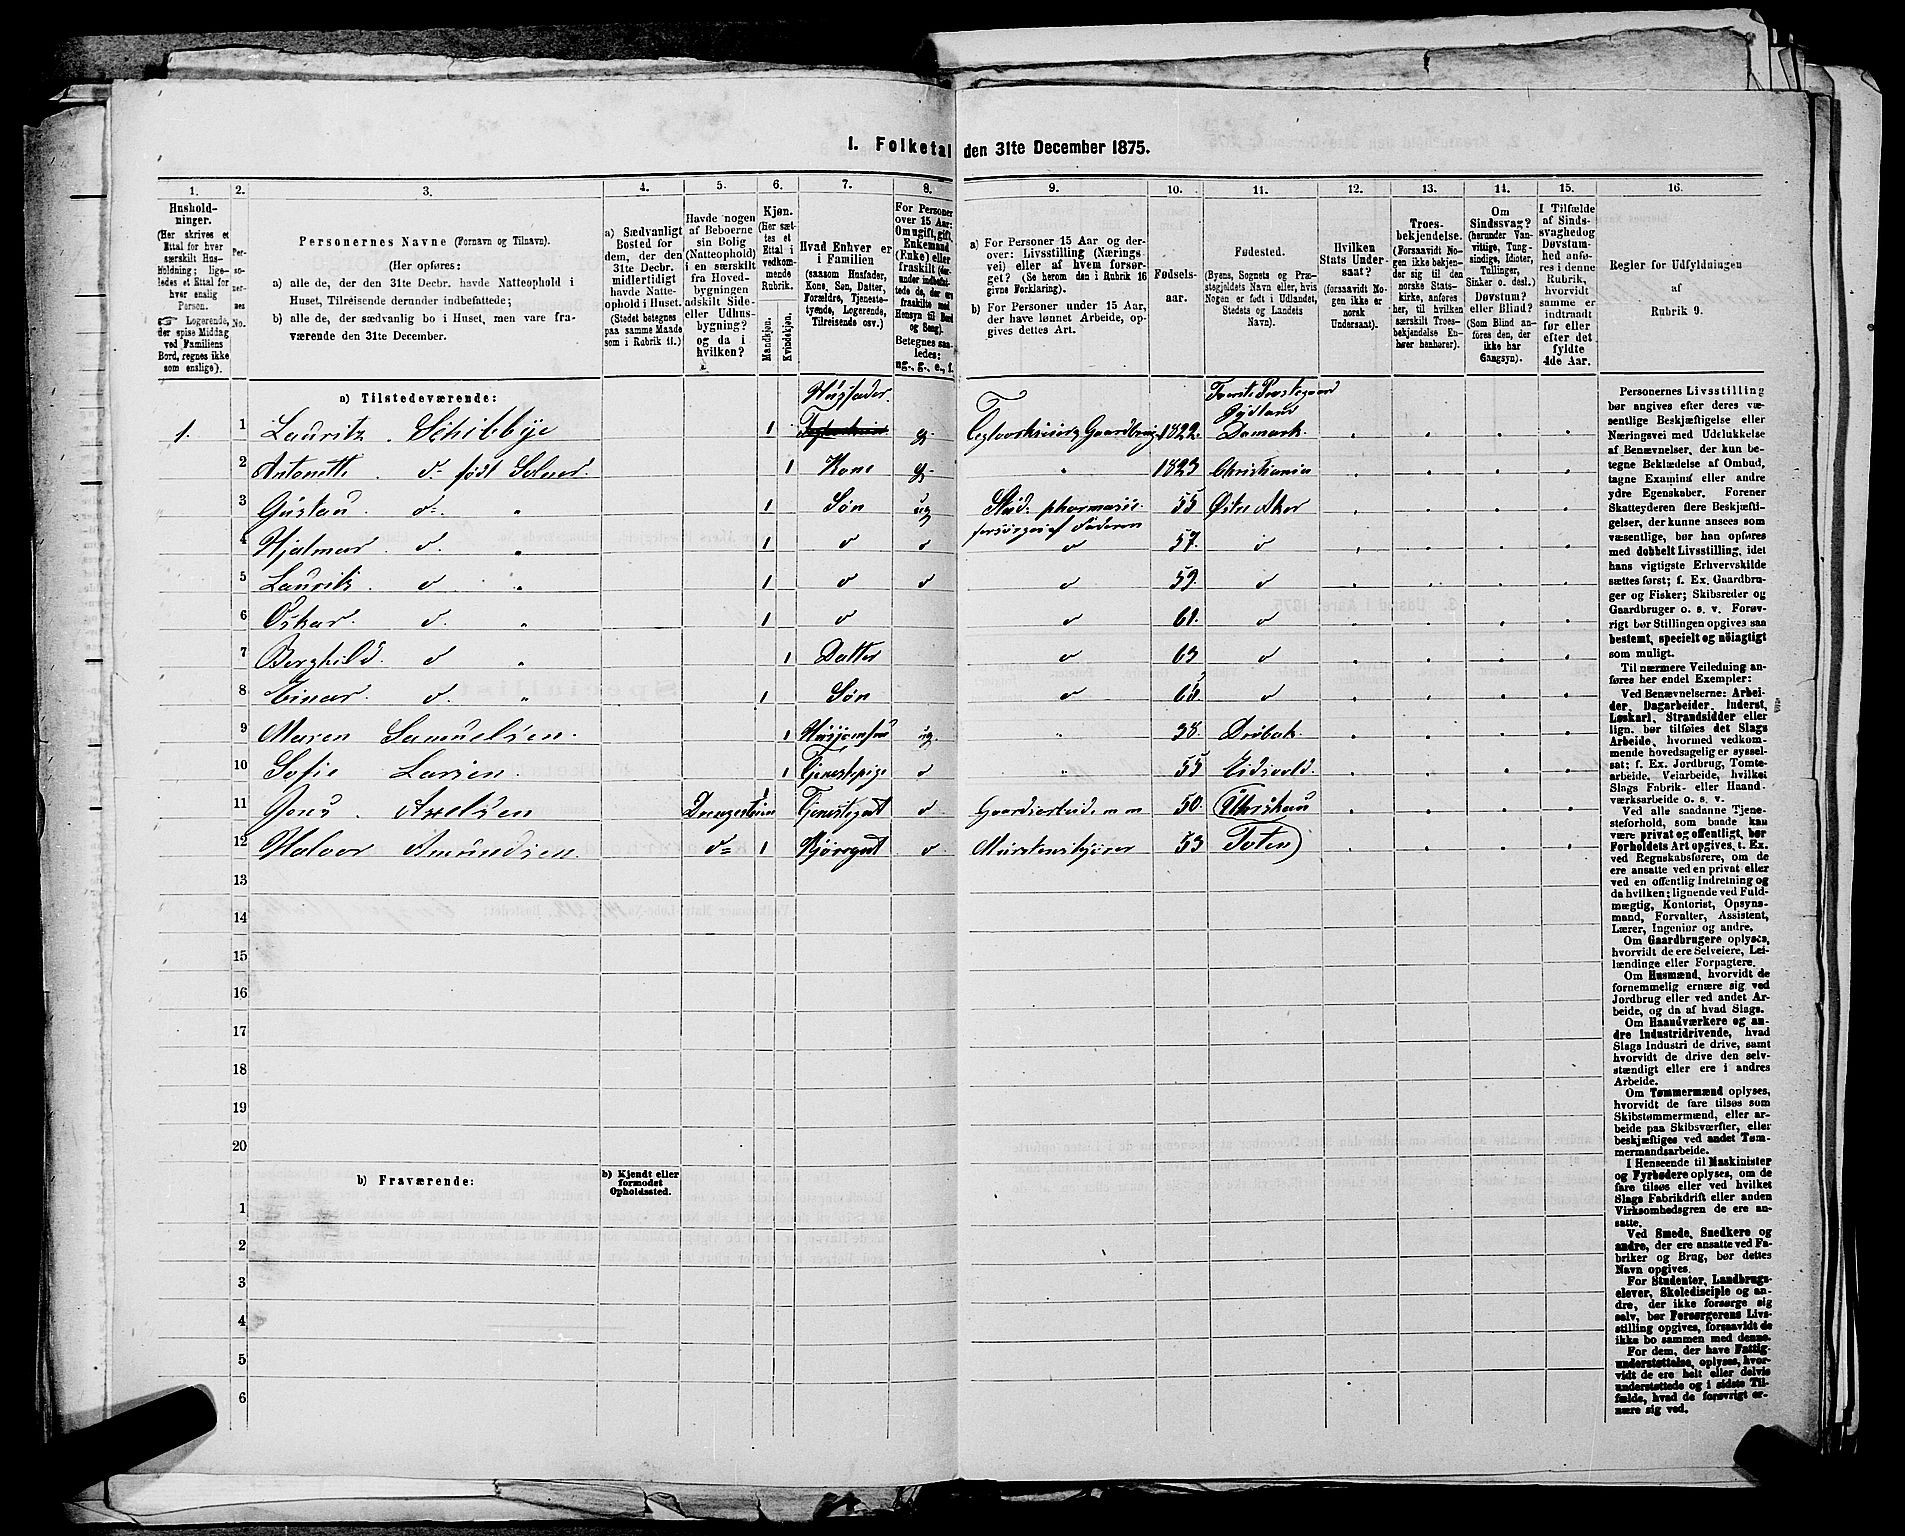 1. Folketal den 31te December 1875.
1. 2. 3. 4. 5. 6. 7. 8. 9. 10. 11. 12. 13. 14. 15. 16.
Husholdninger.
(Her skrives et
Ettal for hver
særskilt Husholdning; ligeledes
et Ettal for
hver enslig
Person.
☞ Logerende,
der spise Middag
ved Familiens
Bord, regnes ikke
som enslige).
Personernes No.
Personernes Navne (Fornavn og Tilnavn).
(Her opføres:
a) alle de, der den 31te Decbr. havde Natteophold i
Huset, Tilreisende derunder indbefattede;
b) alle de, der sædvanlig bo i Huset, men vare fraværende
den 31te December.
a) Sædvanligt
Bosted for
dem, der den
31te Decbr.
midlertidigt
havde Natteophold
i Huset.
(Stedet betegnes
paa samme Maade
som i Rubrik 11.)
Havde nogen
af Beboerne
sin Bolig
(Natteophold)
i en særskilt
fra Hovedbygningen
adskilt Side-
eller Udhusbygning?
og da i
hvilken?
Kjøn.
(Her sættes
et
Ettal i
vedkommende
Rubrik.
Mandkjøn.
Kvindekjøn.
Hvad Enhver er
i Familien
(saasom Husfader,
Kone, Søn, Datter,
Forældre, Tjenestetyende,
Logerende,
Tilreisende osv.)
For Personer
over 15 Aar:
Om ugift, gift,
Enkemand
(Enke) eller
fraskilt
Betegnes saaledes:
ug., g., e., f.
a) For Personer 15 Aar og derover:
Livsstilling (Næringsvei)
eller af hvem forsørget?
(Se herom den i Rubrik 16
givne Forklaring).
b) For Personer under 15 Aar,
der have lønnet Arbeide, opgives
dettes Art.
Fødselsaar.
Fødested.
(Byens, Sognets og Præstegjeldets
Navn eller, hvis
Nogen er født i Udlandet,
Stedets og Landets
Navn).
Hvilken
Stats Undersaat?
(forsaavidt Nogen
ikke er
norsk
Undersaat).
Troesbekjendelse.
(Forsaavidt Nogen
ikke bekjender
sig til den
norske Statskirke,
anføres
her, til hvilken
særskilt Troesbekjendelse
Enhver
henhører).
Om
Sindssvag?
(herunder Vanvittige,
Tungsindige,
Idioter,
Tullinger,
Sinker o. desl.)
Døvstum?
eller Blind?
(Som Blind anføres
den, der
ikke har
Gangsyn).
I Tilfælde
af Sindssvaghed
og
Døvstumhed
anføres
i denne
Rubrik,
hvorvidt
samme er
indtraadt
før eller
efter det
fyldte
4de Aar.
Regler for Udfyldningen
af
Rubrik 9.
a) Tilstedeværende:
1. 1 Lauritz Schibbye 1 Husfader g. Gaardbruger 1822. Danmark.
2 Antonette d: født 1 Kone g. " 1823 Christiania
3 Gustav d: " 1 Søn ug Stud. pharmacie forsørges af Faderen 55 Østre Aker
4 Hjalmar d. " 1 d d d 57. d
5 Lauritz d " 1 d d d 59. d
6 Oskar. d. " 1 d d 61. d
7 Borghild. d " 1 Datter d 63 d
8 Einar. d. " 1 Søn d 65 d
9 Maren Samuelsen. 1 ug. " 38. Drøbak.
10 Sofie Larsen. 1 Tjenestepige d " 55 Eidsvold.
11 Jens Axelsen 1 Tjenestegut d Gaardsarbeide m m 50.
12 Halvor Amundsen d= 1 Kjøregut d Murstenskjører 53 Toten
13
14
15
16
17
18
19
20
b) Fraværende:
b) Kjendt eller
formodet
Opholdssted.
1
2
3
4
5
6
Personernes Livsstilling
bør angives efter deres væsentlige
Beskjæftigelse eller
Næringsvei med Udelukkelse
af Benævnelser, der kun betegne
Beklædelse af Ombud,
tagne Examina eller andre
ydre Egenskaber. Forener
Skatteyderen flere Beskjæftigelser,
der kunne ansees som
væsentlige, bør han opføres
med dobbelt Livsstilling, idet
hans vigtigste Erhvervskilde
sættes først; f. Ex. Gaardbruger
og Fisker; Skibsreder og
Gaardbruger o. s. v. Forøvrigt
bør Stillingen opgives saa
bestemt, specielt og nöiagtigt
som muligt.
Til nærmere Veiledning anføres
her endel Exempler:
Ved Benævnelserne: Arbeider,
Dagarbeider, Inderst,
Løskarl, Strandsidder eller
lign. bør tilføies det Slags
Arbeide, hvormed vedkommende
hovedsagelig er sysselsat;
f. Ex. Jordbrug, Tomtearbeide,
Veiarbeide, hvilket
Slags Fabrik- eller Haandværksarbeide
o. s. v.
Ved alle saadanne Tjenesteforhold,
som baade kan
være privat og offentligt, bør
Forholdets Art opgives, t. Ex.
ved Regnskabsførere, om de
ere ansatte ved en privat eller
ved en offentlig Indretning og
da hvilken; lignende ved Fuldmægtig,
Kontorist, Opsynsmand,
Forvalter, Assistent,
Lærer, Ingeniør og andre.
Om Gaardbrugere oplyses,
hvorvidt de ere Selveiere, Leilændinge
eller Forpagtere.
Om Husmænd, hvorvidt de
fornemmelig ernære sig ved
Jordbrug eller ved andet Arbeide,
og da af hvad Slags.
Om Haandværkere og andre
Industridrivende, hvad
Slags Industri de drive, samt
hvorvidt de drive den selvstændigt
eller ere i andres
Arbeide.
Om Tømmermænd oplyses,
hvorvidt de fare tilsøs som
Skibstømmermænd, eller arbeide
paa Skibsværfter, eller
beskjæftiges ved andet Tømmermandsarbeide.
I Henseende til Maskinister
og Fyrbødere oplyses, om de
fare tilsøs eller ved hvilket
Slags Fabrikdrift eller anden
Virksomhedsgren de ere ansatte.
Ved Smede, Snedkere og
andre, der ere ansatte ved Fabriker
og Brug, bør dettes
Navn opgives.
For Studenter, Landbrugselever,
Skoledisciple og andre,
der ikke forsørge sig
selv, bør Forsørgerens Livsstilling
opgives, forsaavidt de
ikke bo sammen med denne.
For dem, der have Fattigunderstøttelse,
oplyses, hvorvidt
de ere helt eller delvis
understøttede og i sidste Tilfælde,
hvad de forøvrigt ernære
sig ved.